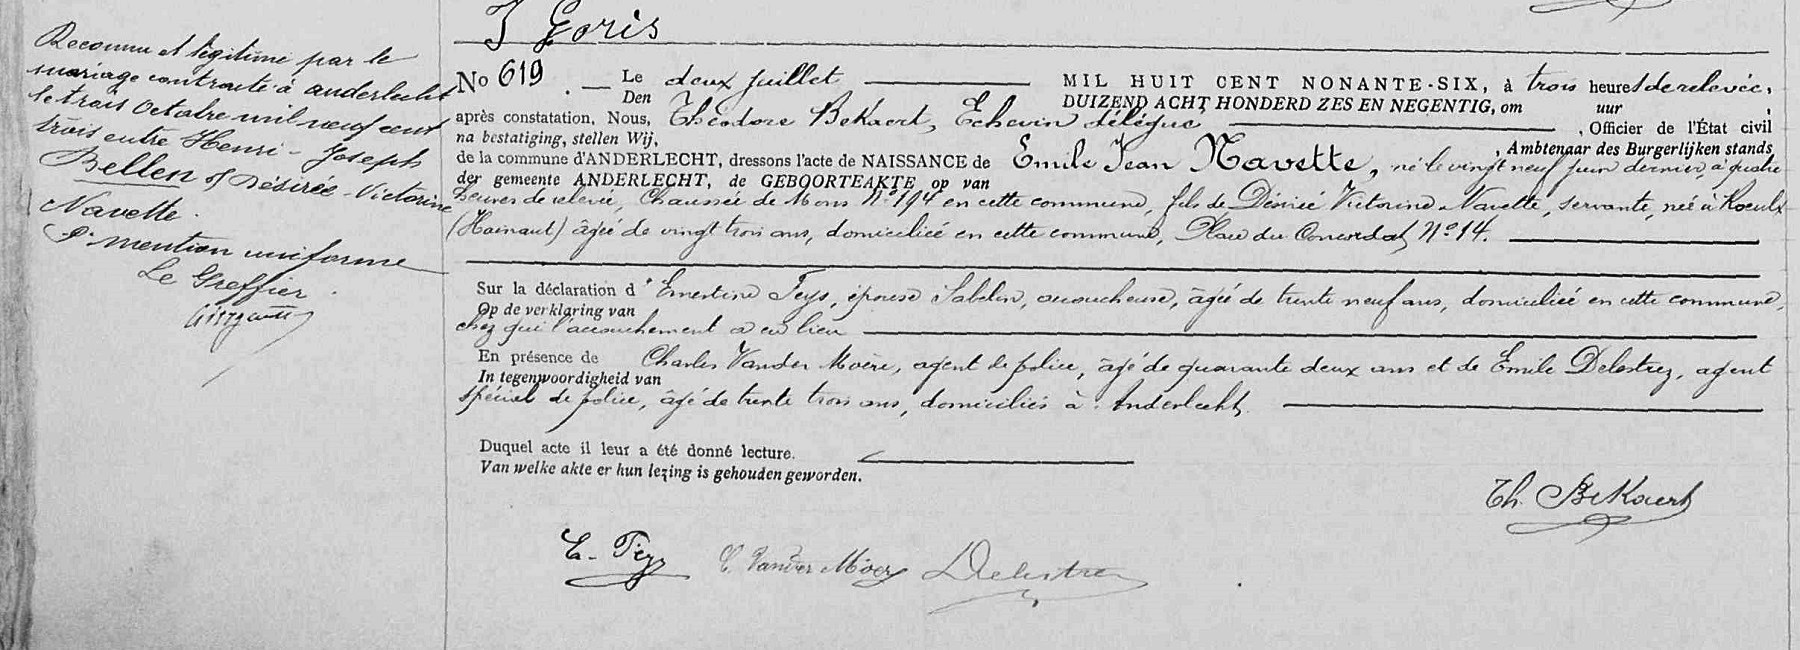 J Goris
Reconnu et légitimé par le
mariage contracté à anderlecht
le trois Octobre mil neuf cent
trois entre Henri-Joseph
Bellen & Désirée-Victorine
Navette.
Pr mention uniforme
Le Greffier
No 619 . — Le deux juillet MIL HUIT CENT NONANTE-SIX, à trois heures de relevée,
Den DUIZEND ACHT HONDERD ZES EN NEGENTIG, om uur ,
après constatation, Nous, Théodore BeKaert, Echevin délégué , Officier de l'État civil
na bestatiging, stellen Wij, , Ambtenaar des Burgerlijken stands
de la commune d'ANDERLECHT, dressons l'acte de NAISSANCE de Emile Jean Navette, né le vingt neuf juin dernier, à quatre
der gemeente ANDERLECHT, de GEBOORTEAKTE op van
heures de relevée, Chaussée de Mons No 194 en cette commune, fils de Désirée Victorine Navette, servante, née à Roeulx
(Hainaut) âgée de vingt trois ans, domiciliée en cette commune, Place du Conseil No 14.
Sur la déclaration d'Ernestine Feys, épouse Sabelin, accoucheuse, âgée de trente neuf ans, domiciliée en cette commune,
Op de verklaring van
chez qui l'accouchement a eu lieu
En présence de Charles Vander Moere, agent de police, âgé de quarante deux ans et de Emile Delestrez, agent
In tegenwoordigheid van
spécial de police, âgé de trente trois ans, domiciliés à Anderlecht.
Duquel acte il leur a été donné lecture.
Van welke akte er hun lezing is gehouden geworden.
Th. BeKaert
E. Feys C. Vander Moere Delestrez